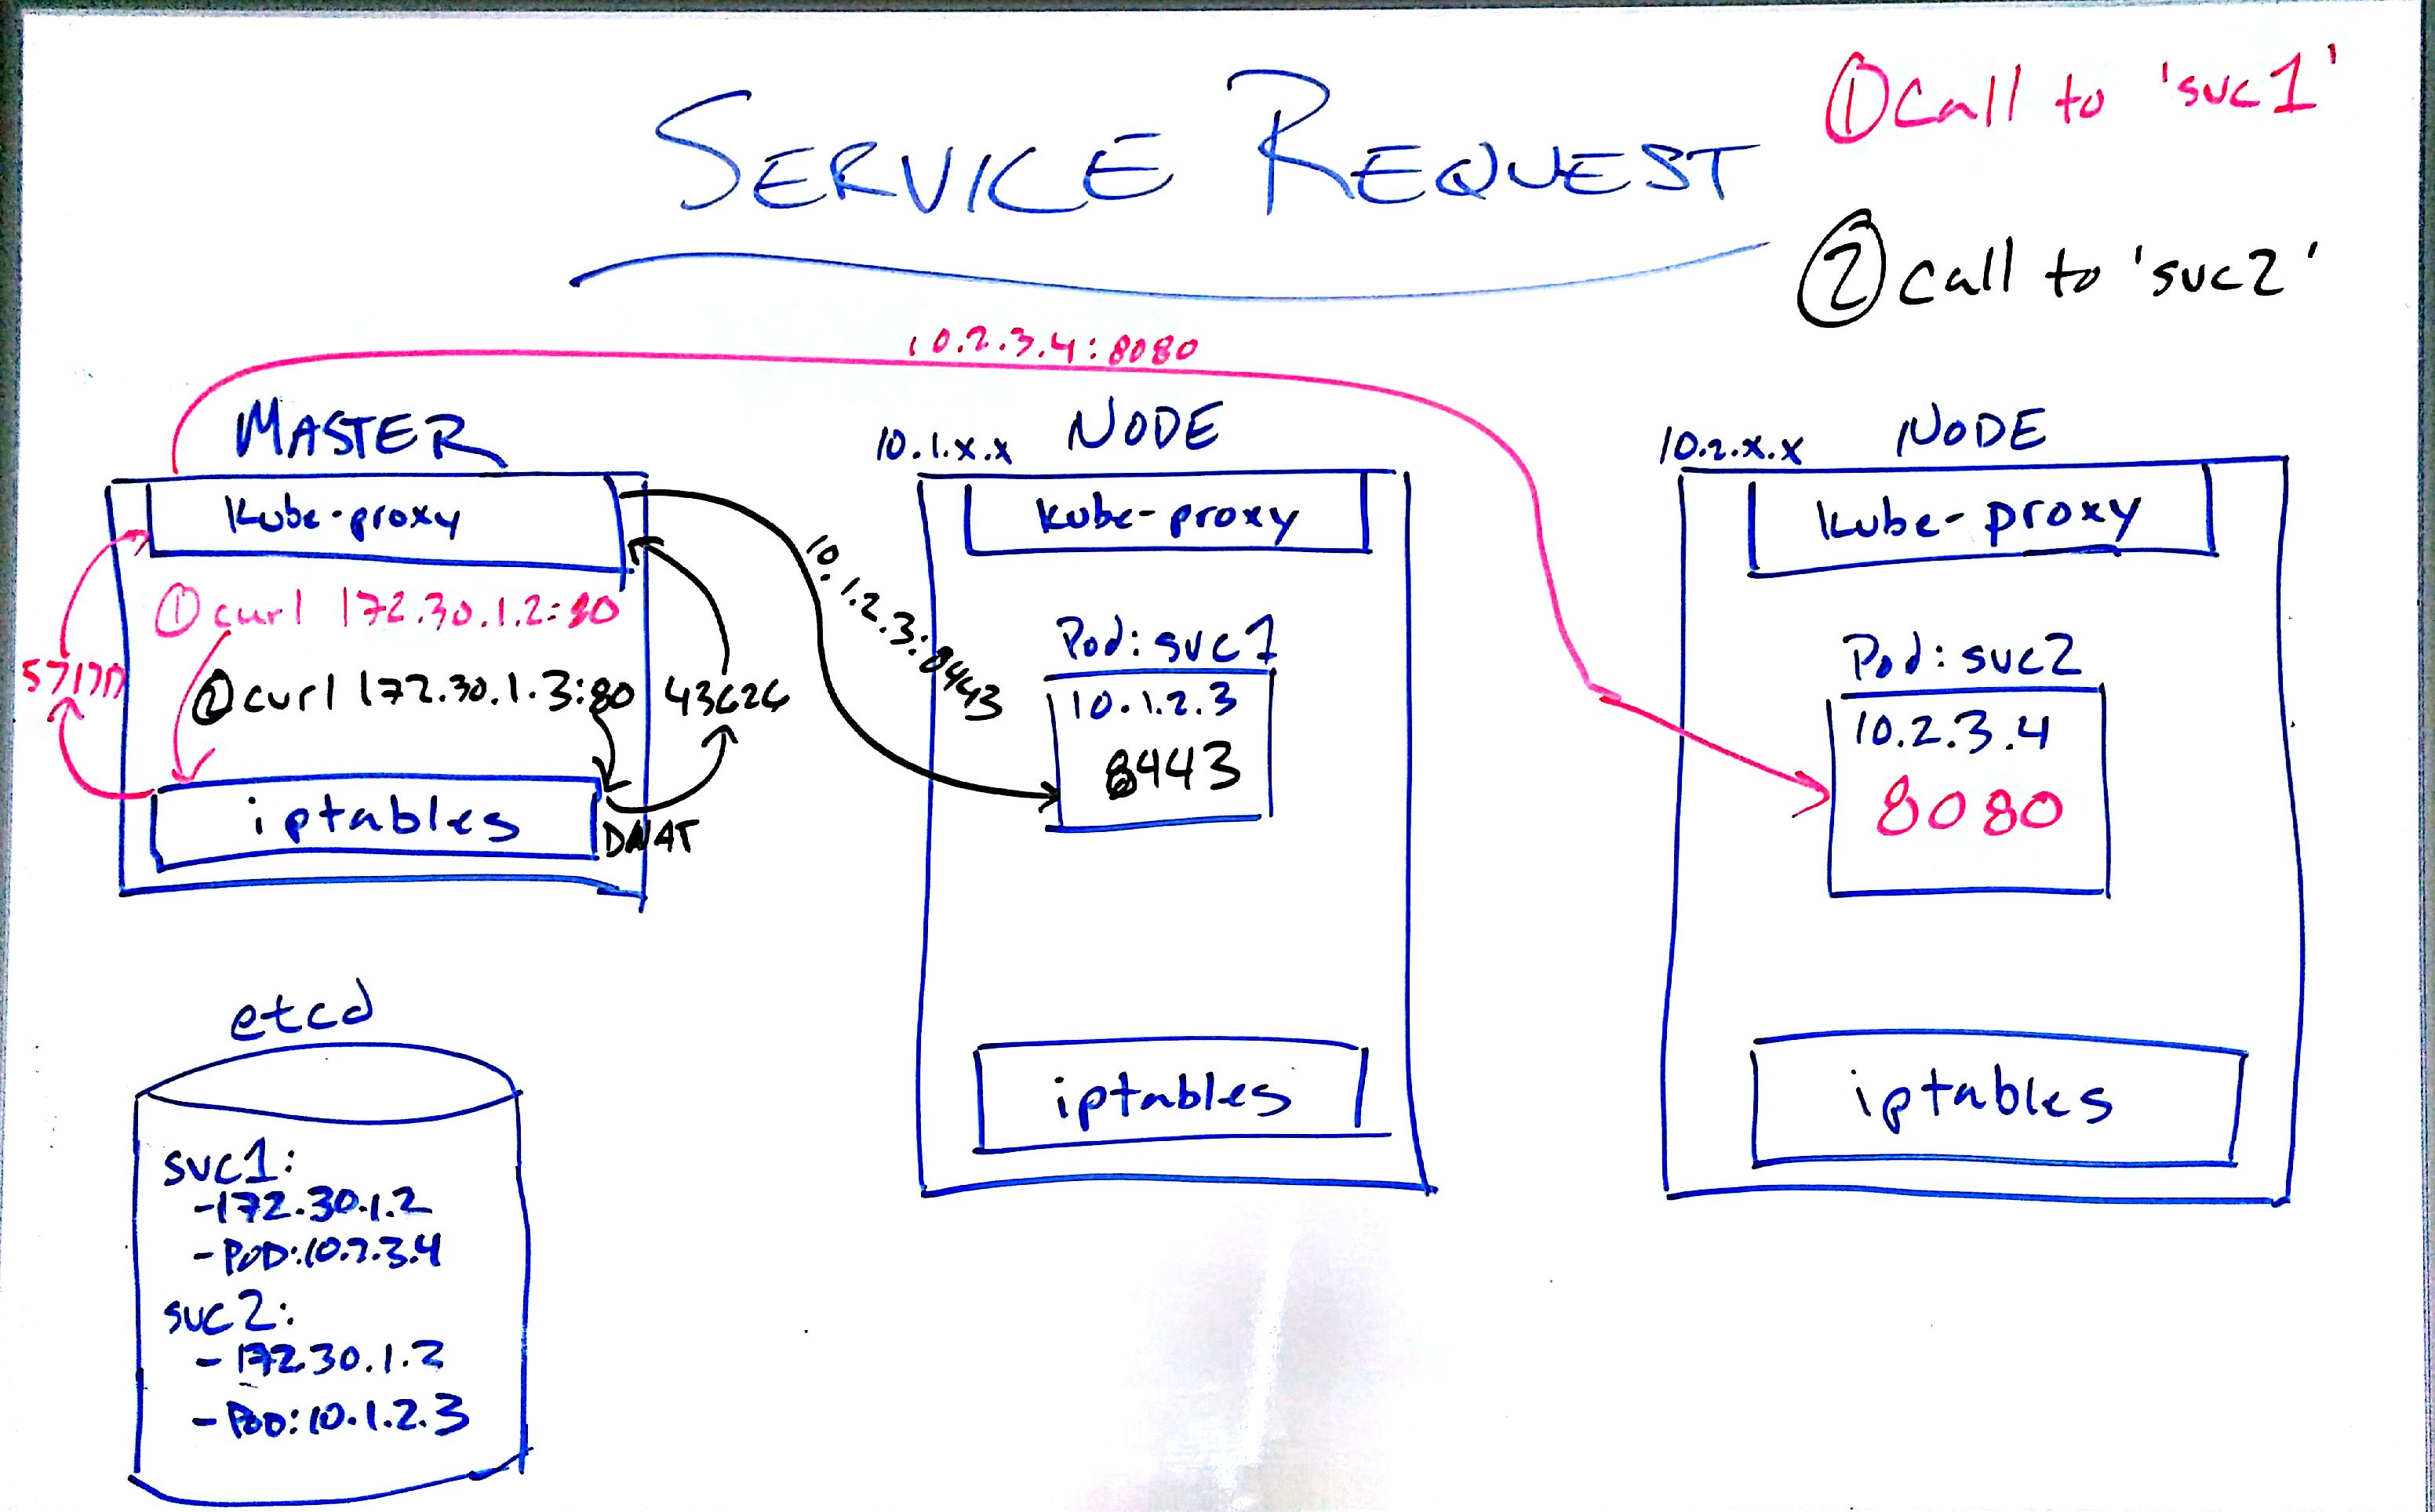 SERVICE REQUEST
① Call to 'svc1'
② Call to 'svc2'
10.2.3.4:8080
MASTER
kube-proxy
① curl 172.30.1.2:80
② curl 172.30.1.3:80
43626
iptables
DNAT
10.1.2.3:8443
10.1.x.x
NODE
kube-proxy
Pod: svc1
10.1.2.3
8443
iptables
10.2.x.x
NODE
kube-proxy
Pod: svc2
10.2.3.4
8080
iptables
etcd
svc1:
-172.30.1.2
-POD:10.2.3.4
svc2:
-172.30.1.3
-POD:10.1.2.3